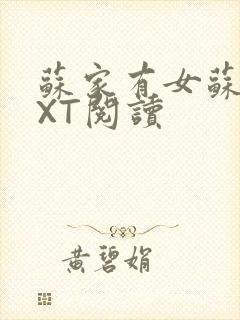 蘇家有女蘇
XT閱讀
黃碧娟